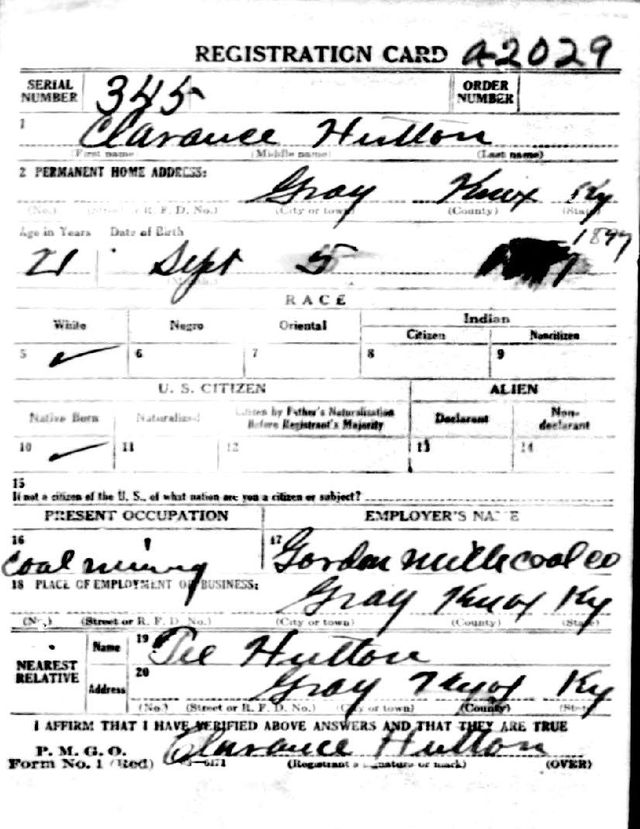 REGISTRATION CARD A2029
SERIAL NUMBER 345 ORDER NUMBER
1 Clarance Hutton
First name (Middle name) (Last name)
2 PERMANENT HOME ADDRESS:
Gray Knox Ky
(No.) (Street or R. F. D. No.) (City or town) (County) (State)
Age in Years Date of Birth 1897
21 Sept 5
RACE
White Negro Oriental Indian
Citizen Noncitizen
5 ✓ 6 7 8 9
U. S. CITIZEN ALIEN
Native Born Naturalized Citizen by Father's Naturalization Before Registrant's Majority Declarant Non-declarant
10 ✓ 11 12 13 14
15
If not a citizen of the U. S., of what nation are you a citizen or subject?
PRESENT OCCUPATION EMPLOYER'S NAME
16 Coal mining 17 Gordon Mills Coal Co
18 PLACE OF EMPLOYMENT OR BUSINESS:
Gray Knox Ky
(No.) (Street or R. F. D. No.) (City or town) (County) (State)
NEAREST RELATIVE Name 19 Hutton
Address 20 Gray Knox Ky
(No.) (Street or R. F. D. No.) (City or town) (County) (State)
I AFFIRM THAT I HAVE VERIFIED ABOVE ANSWERS AND THAT THEY ARE TRUE
P. M. G. O.
Form No. 1 (Red) Clarance Hutton
(Registrant's signature or mark) (OVER)